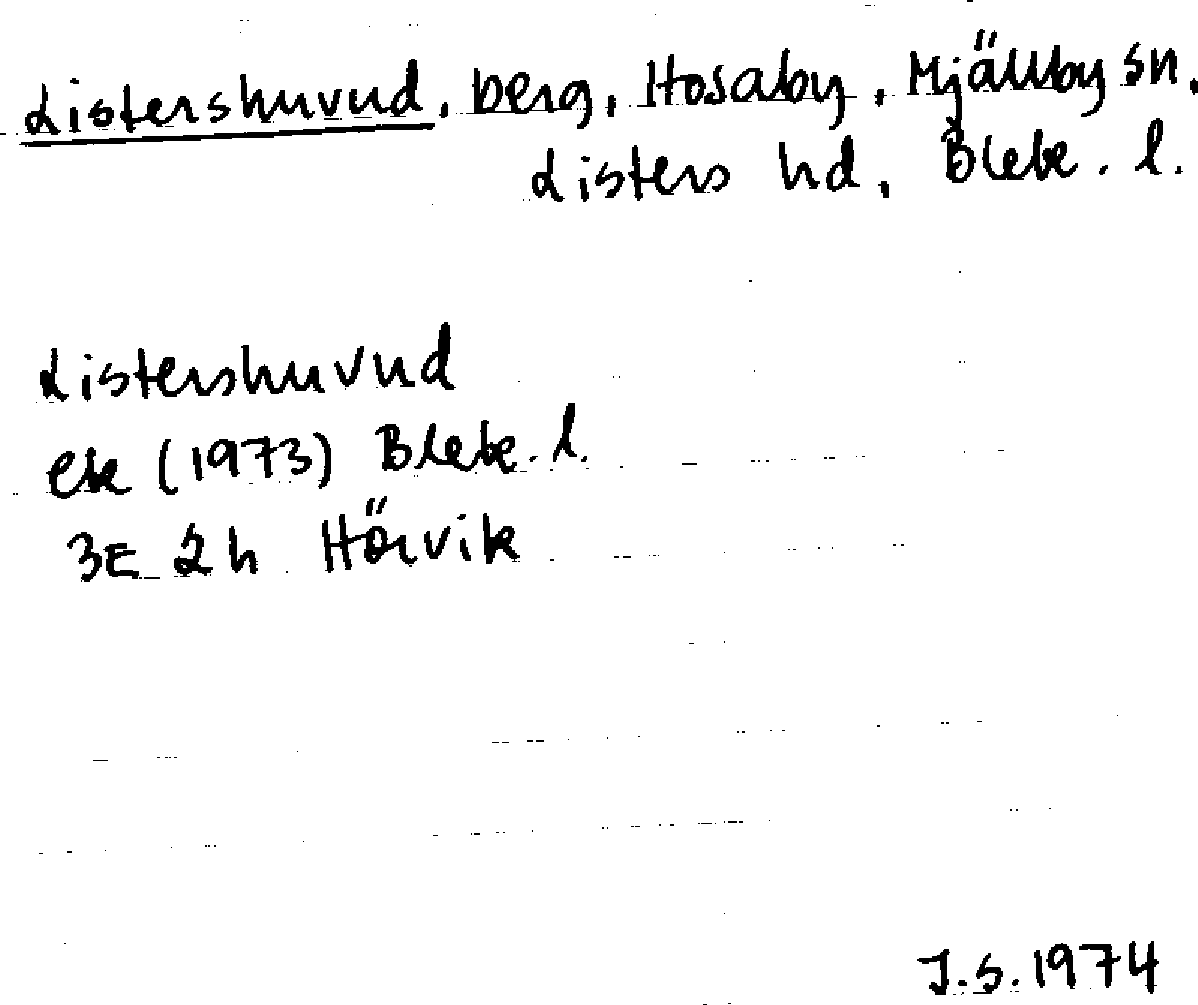 Listershuvud, berg, Hosaby, Mjällby sn.
Listers hd, Blek. l.
Listershuvud
ek (1973) Blek. l.
3E 2h Hörvik
J.S. 1974